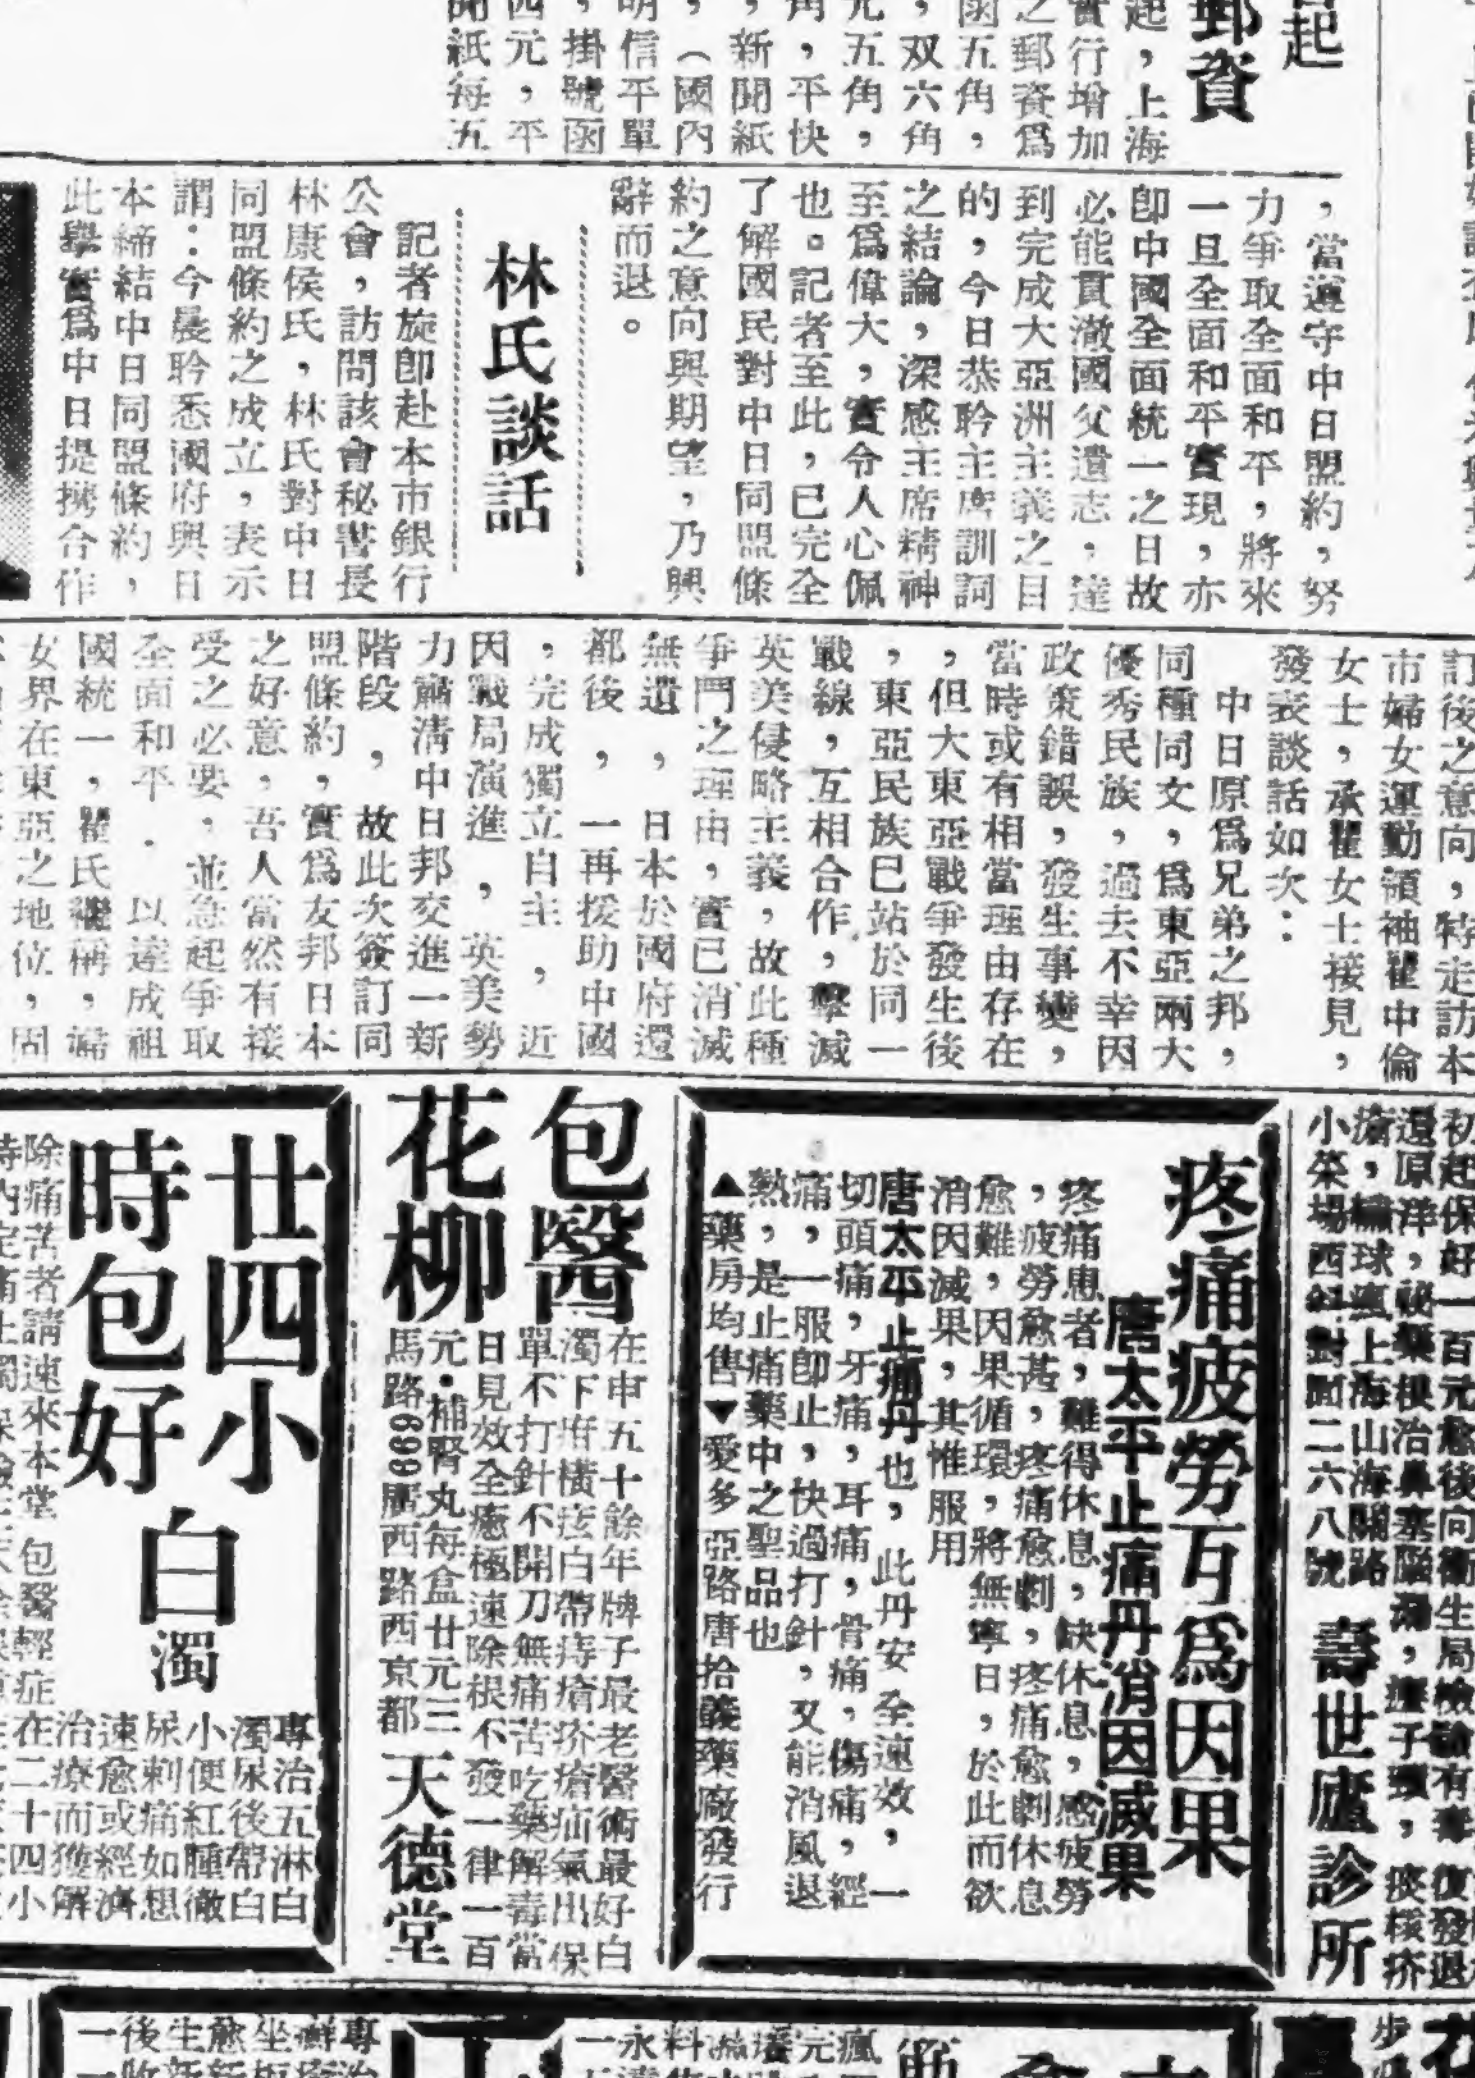 起
郵資
起，上海
實行增加
之郵資爲
函五角，
，双六角
元五角，
角，平快
，新聞紙
，（國內
明信平單
，掛號函
四元，平
聞紙每五
，當遵守中日盟約，努
力爭取全面和平，將來
一旦全面和平實現，亦
卽中國全面統一之日故
必能貫澈國父遺志，達
到完成大亞洲主義之目
的，今日恭聆主席訓詞
之結論，深感主席精神
至爲偉大，實令人心佩
也。記者至此，已完全
了解國民對中日同盟條
約之意向與期望，乃興
辭而退。
林氏談話
記者旋卽赴本市銀行
公會，訪問該會秘書長
林康侯氏，林氏對中日
同盟條約之成立，表示
謂：今晨聆悉國府與日
本締結中日同盟條約，
此舉實爲中日提攜合作
訂後之意向，特走訪本
市婦女運動領袖瞿中倫
女士，承瞿女士接見，
發表談話如次：
中日原爲兄弟之邦，
同種同文，爲東亞兩大
優秀民族，過去不幸因
政策錯誤，發生事變，
當時或有相當理由存在
，但大東亞戰爭發生後
，東亞民族已站於同一
戰線，互相合作，擊滅
英美侵略主義，故此種
爭鬥之理由，實已消滅
無遺，日本於國府還
都後，一再援助中國
，完成獨立自主，近
因戰局演進，英美勢
力肅淸中日邦交進一新
階段，故此次簽訂同
盟條約，實爲友邦日本
之好意，吾人當然有接
受之必要，並急起爭取
全面和平．以達成祖
國統一，瞿氏繼稱，婦
女界在東亞之地位，固
初起保好一百元愈後向衞生局檢驗有毒復發退
還原洋，祕藥根治鼻塞腦漏，瘰子頸，痰核疥
瘡，繡球瘋上海山海關路
小菜場西斜對面二六八號
壽世廬診所
疼痛疲勞互爲因果
唐太平止痛丹消因滅果
疼痛患者，難得休息，缺休息，感疲勞
，疲勞愈甚，疼痛愈劇，疼痛愈劇休息
愈難，因果循環，將無寧日，於此而欲
消因滅果，其惟服用
唐太平止痛丹也，此丹安全速效，一
切頭痛，牙痛，耳痛，骨痛，傷痛，經
痛，一服卽止，快過打針，又能消風退
熱，是止痛藥中之聖品也
▲藥房均售▼愛多亞路唐拾義藥廠發行
包醫
花柳
在申五十餘年牌子最老醫術最好白
濁下疳橫痃白帶痔瘡疥瘡疝氣出保
單不打針不開刀無痛苦吃藥解毒當
日見效全癒極速除根不發一律一百
元．補腎丸每盒廿元三
馬路699廣西路西京都
天德堂
廿四小
時包好
白濁
專治五淋白
濁尿後帶白
小便紅腫徹
尿刺痛如想
速愈或經濟
治療而獲解
除痛苦者請速來本堂 包醫輕症在二十四小
專治